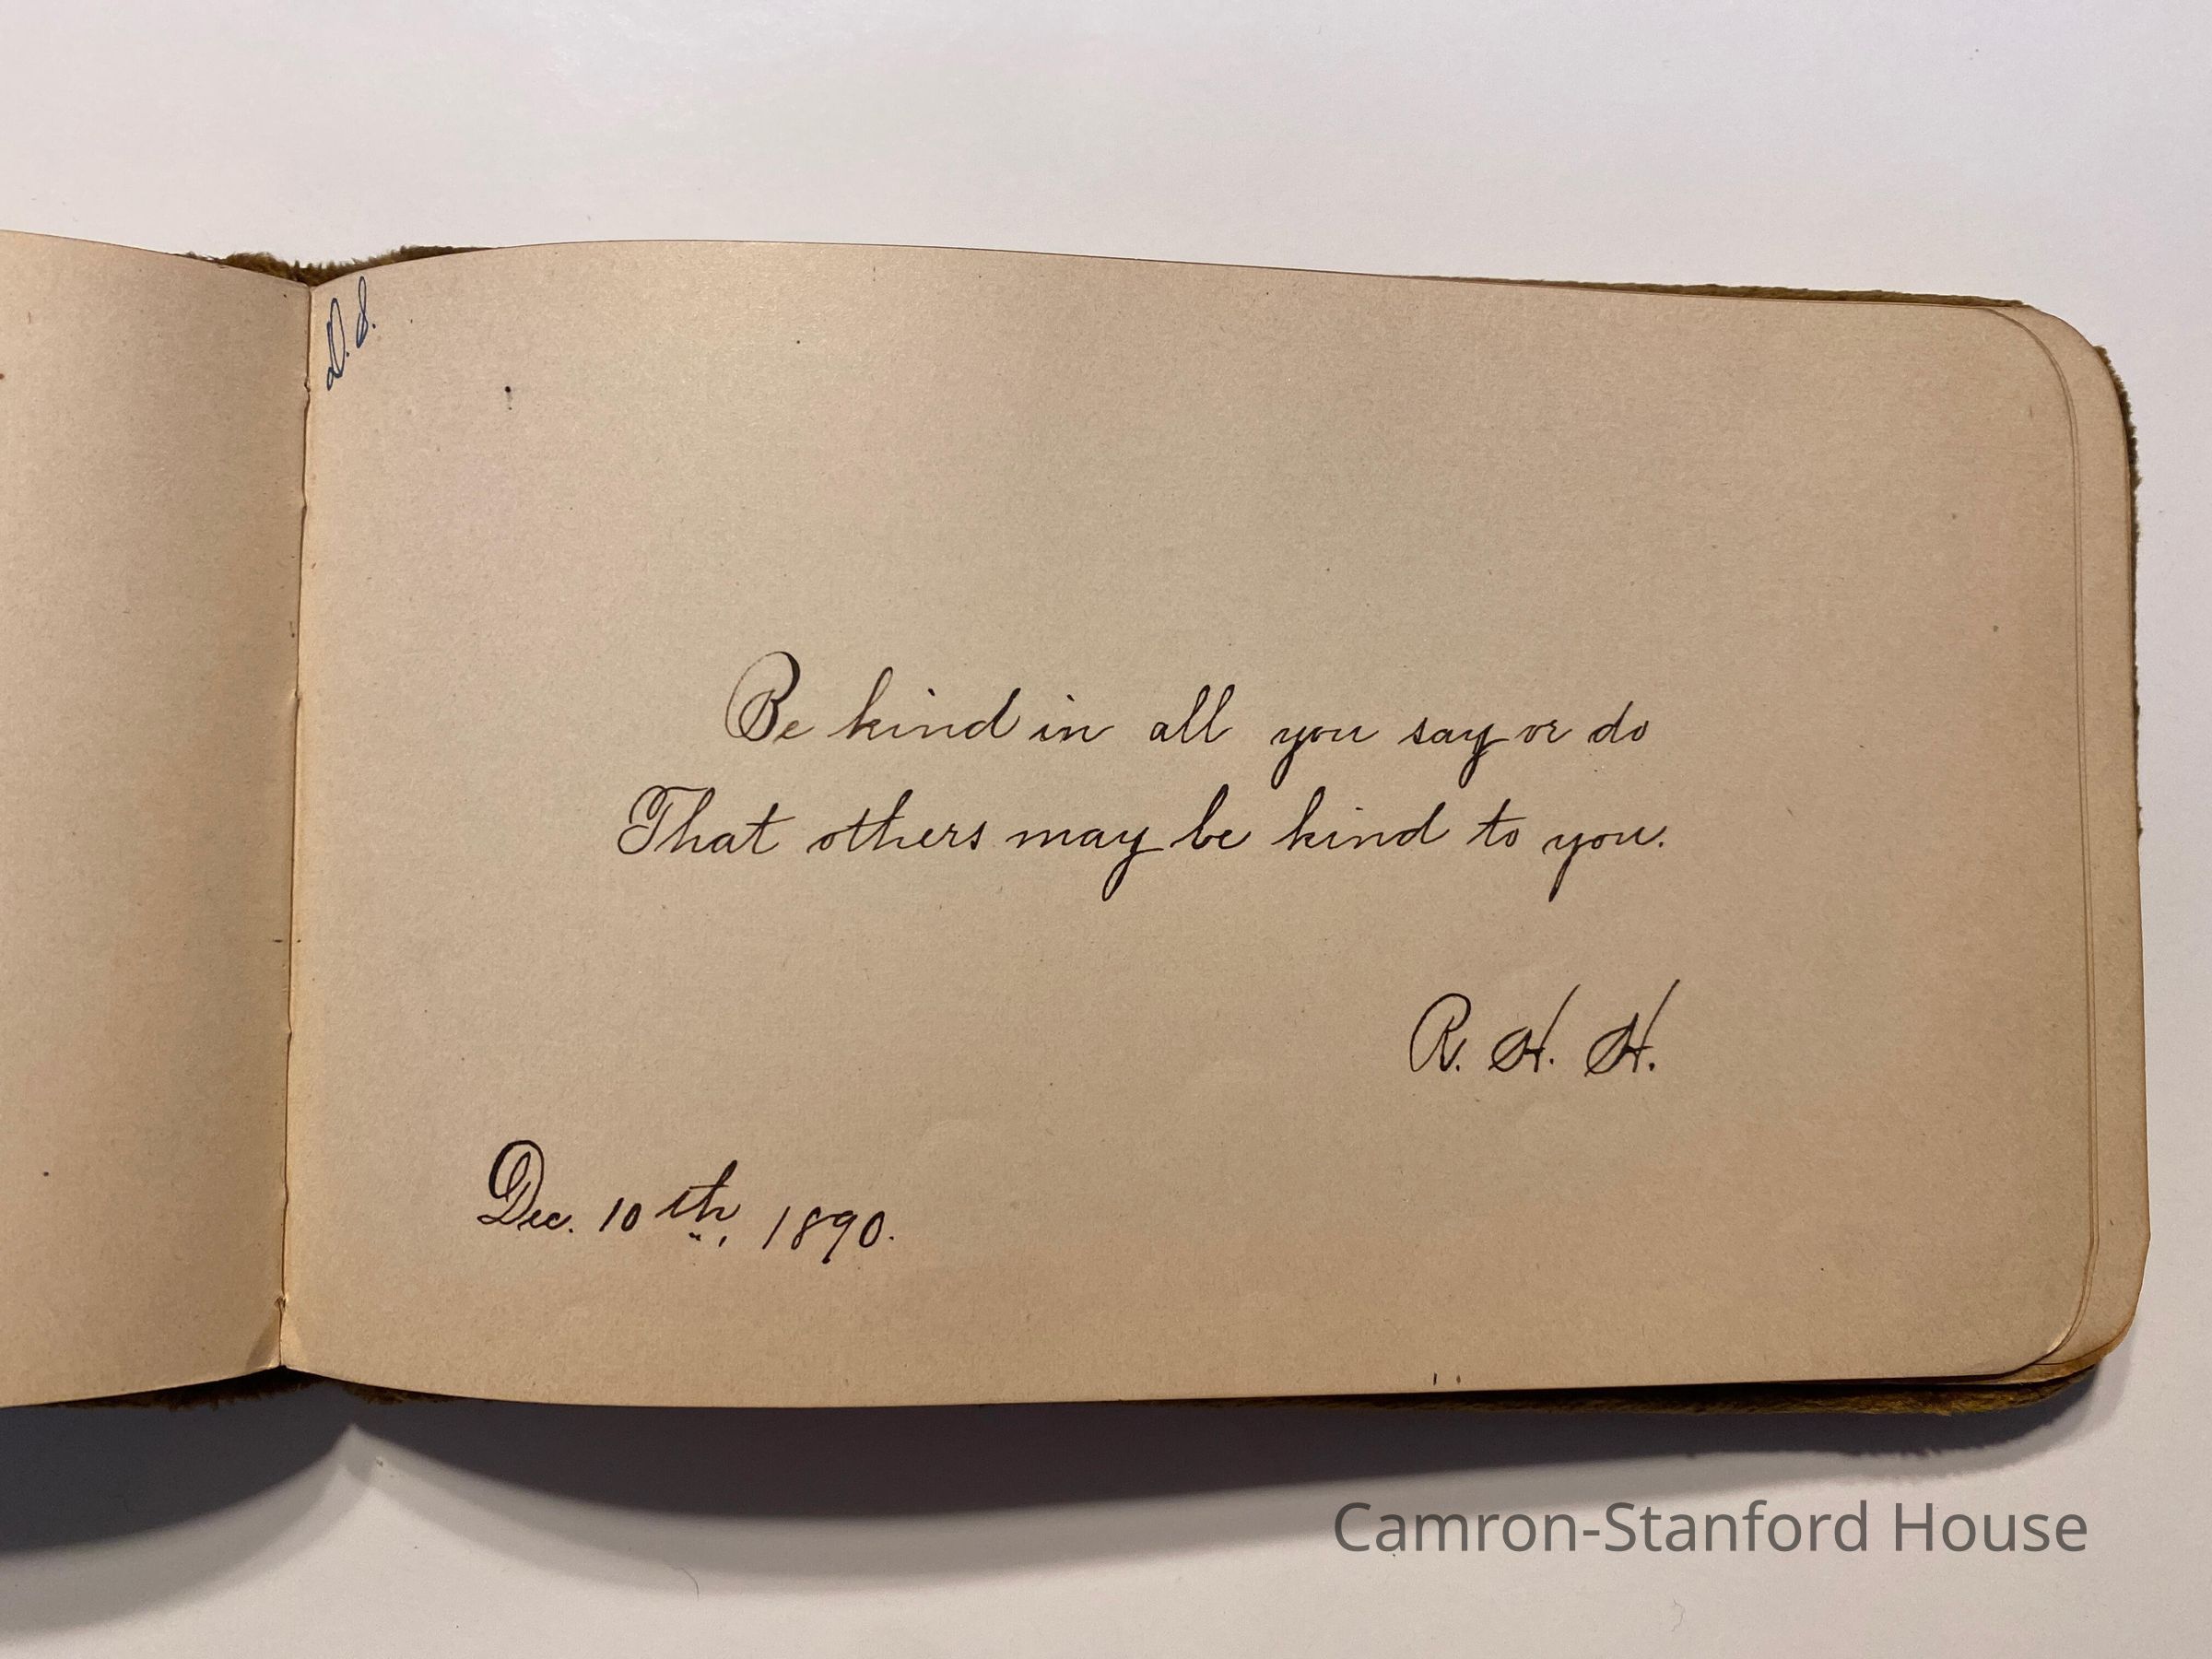 Be kind in all you say or do
That others may be kind to you.
R. H. H.
Dec. 10th, 1890.
Camron-Stanford House